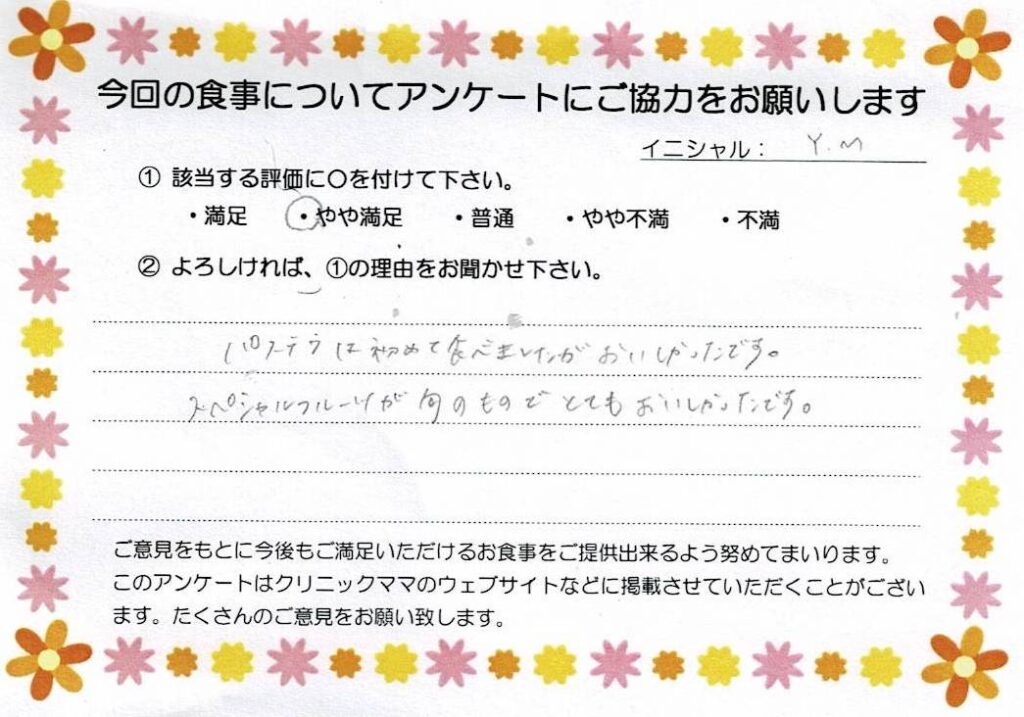 今回の食事についてアンケートにご協力をお願いします
イニシャル： Y.M
① 該当する評価に〇を付けて下さい。
・満足 ・やや満足 ・普通 ・やや不満 ・不満
② よろしければ、①の理由をお聞かせ下さい。
パステラは初めて食べましたがおいしかったです。
スペシャルフルーツが旬のものでとてもおいしかったです。
ご意見をもとに今後もご満足いただけるお食事をご提供出来るよう努めてまいります。
このアンケートはクリニックママのウェブサイトなどに掲載させていただくことがござい
ます。たくさんのご意見をお願い致します。